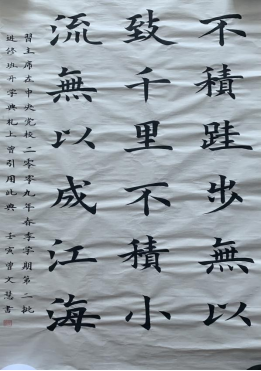 不積跬步無以
致千里不積小
流無以成江海
習主席在中央党校二零零九年春季学期第二批
进修班开学典礼上曾引用此典 壬寅曾文慧書